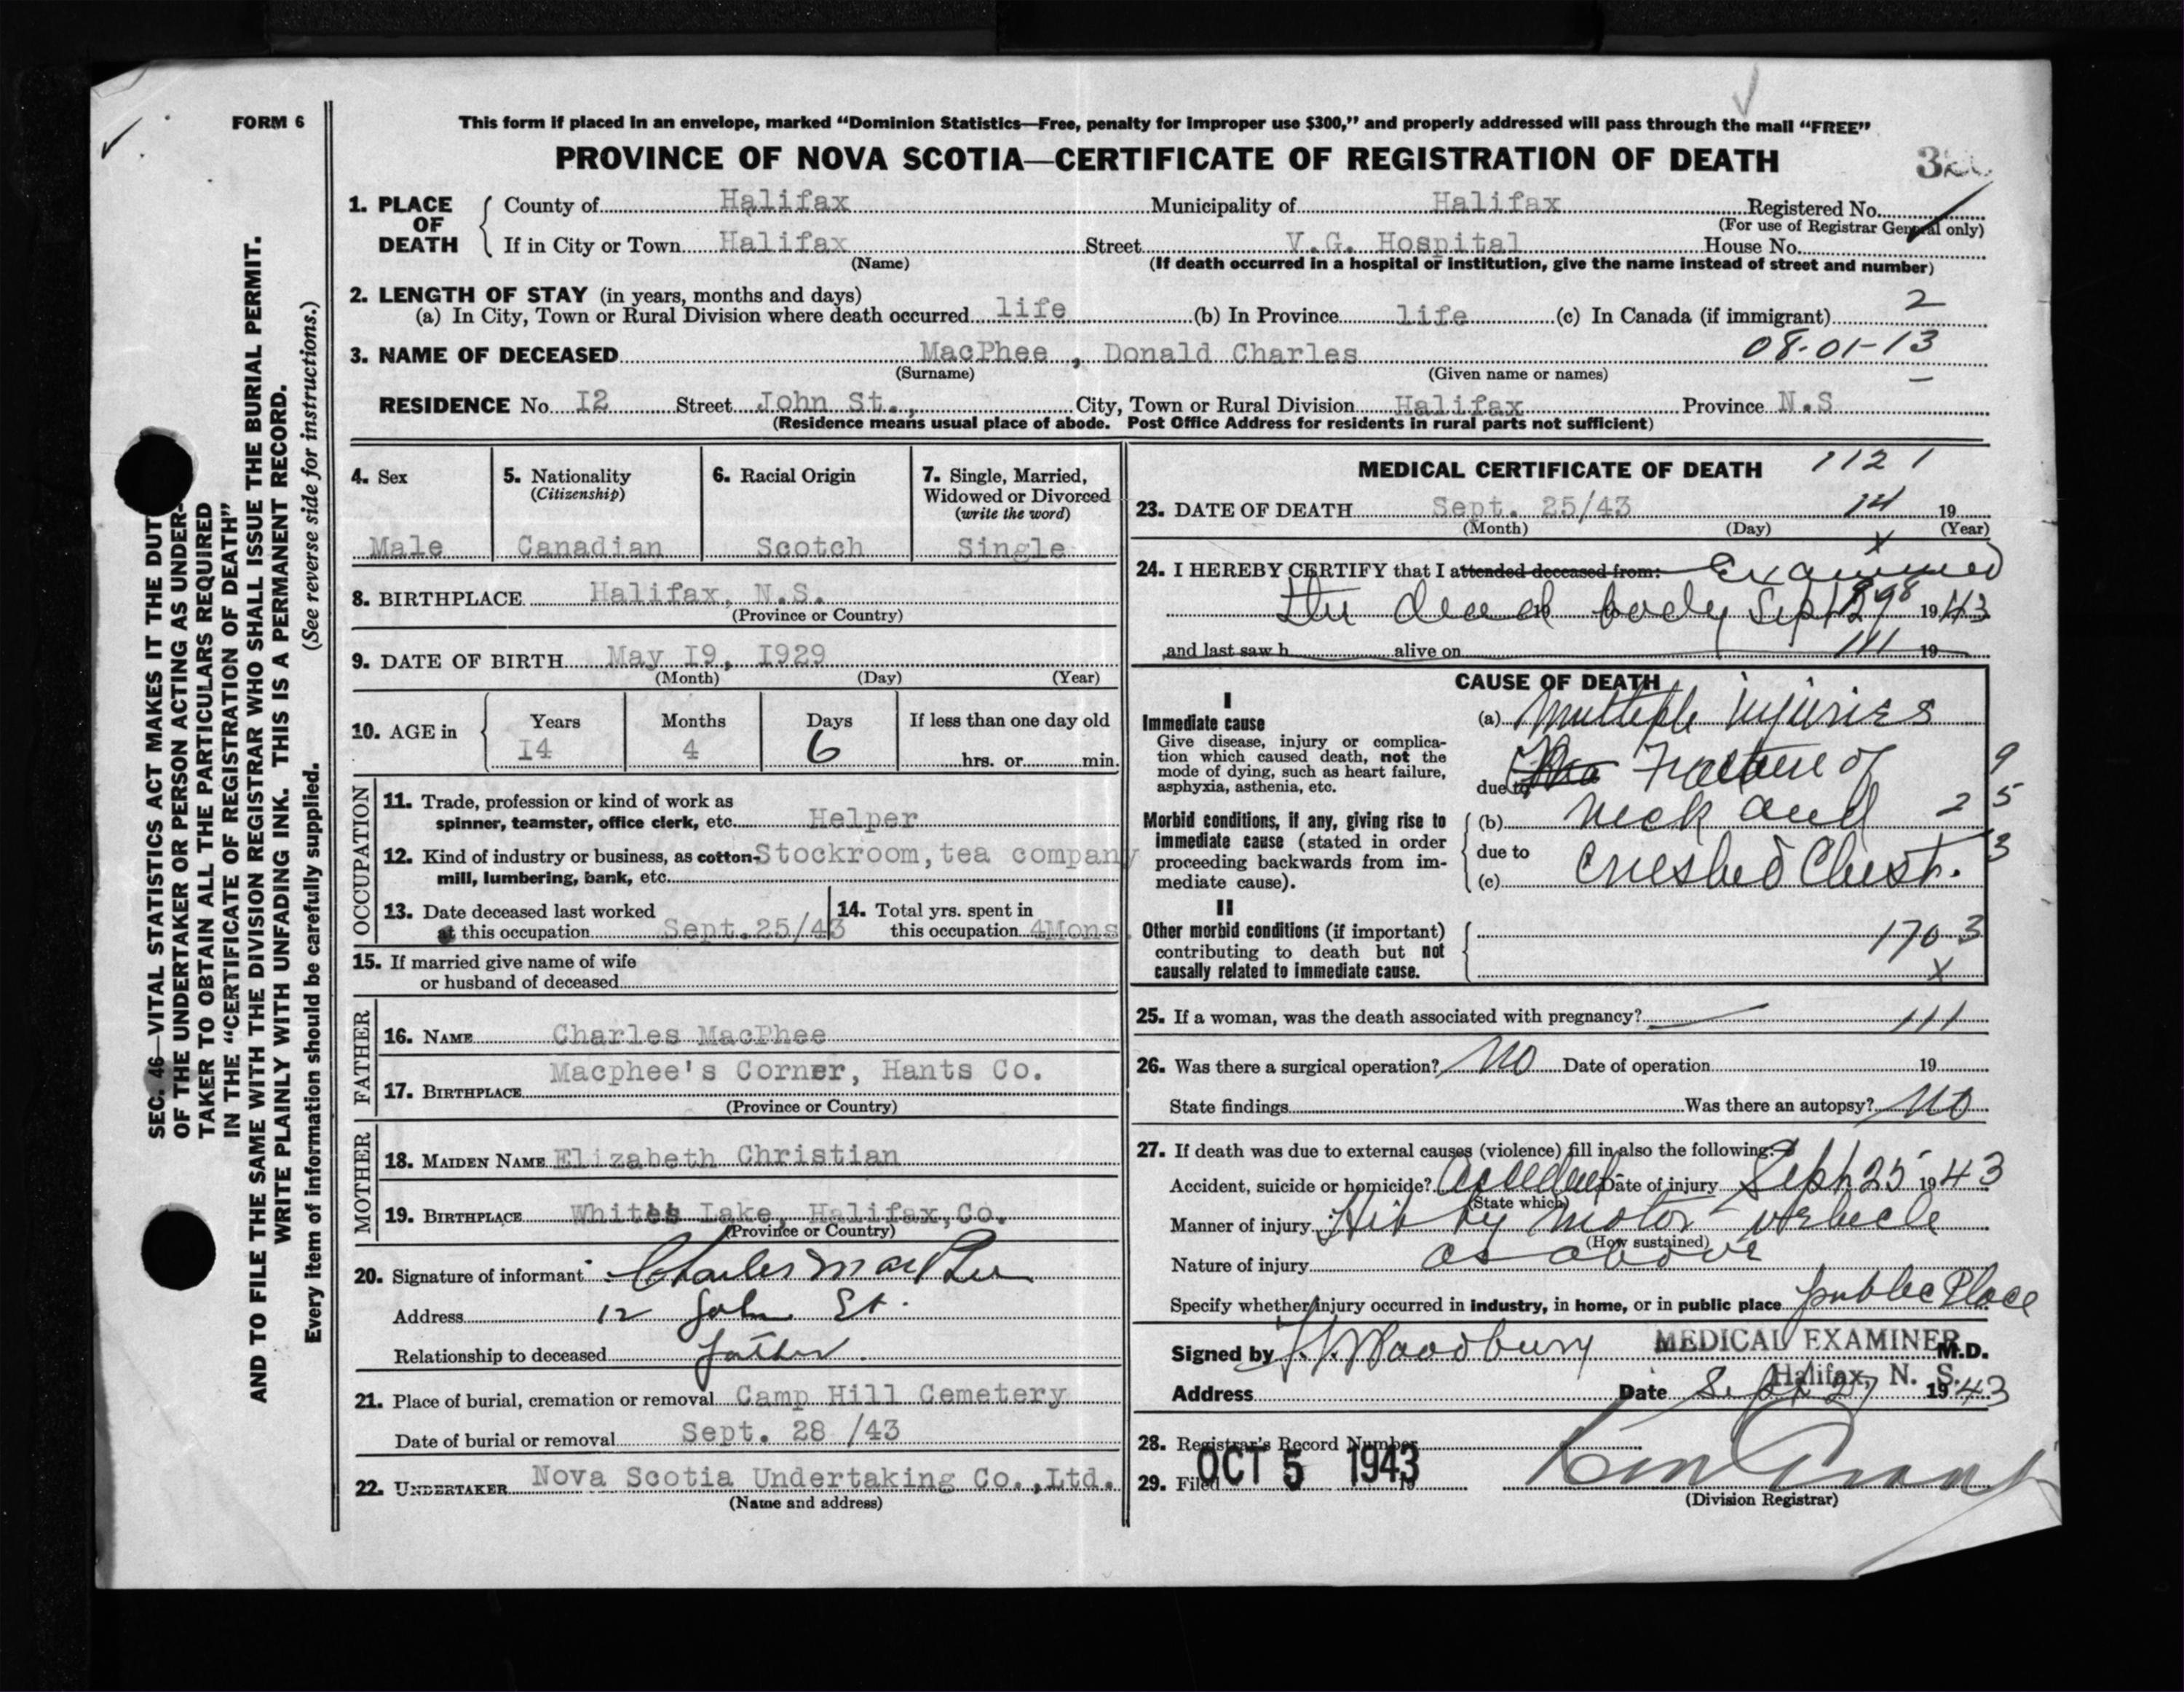 FORM 6
This form if placed in an envelope, marked “Dominion Statistics—Free, penalty for improper use $300,” and properly addressed will pass through the mail “FREE”
PROVINCE OF NOVA SCOTIA—CERTIFICATE OF REGISTRATION OF DEATH
1. PLACE OF DEATH
County of Halifax Municipality of Halifax Registered No.
(For use of Registrar General only)
If in City or Town Halifax Street V.G. Hospital House No.
(Name) (If death occurred in a hospital or institution, give the name instead of street and number)
2. LENGTH OF STAY (in years, months and days)
(a) In City, Town or Rural Division where death occurred life (b) In Province life (c) In Canada (if immigrant) 2
3. NAME OF DECEASED MacPhee , Donald Charles 08-01-13
(Surname) (Given name or names)
RESIDENCE No. I2 Street John St., City, Town or Rural Division Halifax Province N.S
(Residence means usual place of abode. Post Office Address for residents in rural parts not sufficient)
4. Sex
Male
5. Nationality
(Citizenship)
Canadian
6. Racial Origin
Scotch
7. Single, Married,
Widowed or Divorced
(write the word)
Single
8. BIRTHPLACE Halifax, N.S.
(Province or Country)
9. DATE OF BIRTH May I9, I929
(Month) (Day) (Year)
10. AGE in
Years Months Days If less than one day old
I4 4 6 hrs. or min.
OCCUPATION
11. Trade, profession or kind of work as
spinner, teamster, office clerk, etc. Helper
12. Kind of industry or business, as cotton- Stockroom, tea company
mill, lumbering, bank, etc.
13. Date deceased last worked
at this occupation Sept.25/43
14. Total yrs. spent in
this occupation 4Mons.
15. If married give name of wife
or husband of deceased
FATHER
16. NAME Charles MacPhee
Macphee's Corner, Hants Co.
17. BIRTHPLACE
(Province or Country)
MOTHER
18. MAIDEN NAME Elizabeth Christian
19. BIRTHPLACE Lake, Halifax, Co.
(Province or Country)
20. Signature of informant Charles MacPhee
Address 12 John St.
Relationship to deceased father
21. Place of burial, cremation or removal Camp Hill Cemetery
Date of burial or removal Sept. 28 /43
22. UNDERTAKER Nova Scotia Undertaking Co.,Ltd.
(Name and address)
MEDICAL CERTIFICATE OF DEATH 1121
23. DATE OF DEATH Sept. 25/43 14 19
(Month) (Day) (Year)
24. I HEREBY CERTIFY that I attended deceased from: Examined
the dead body Sept 1943
and last saw h alive on 111 19
CAUSE OF DEATH
I
Immediate cause
Give disease, injury or complica-
tion which caused death, not the
mode of dying, such as heart failure,
asphyxia, asthenia, etc.
(a) Multiple injuries
due to Fracture of 9
Morbid conditions, if any, giving rise to
immediate cause (stated in order
proceeding backwards from im-
mediate cause).
(b) neck and 2 5
due to
(c) Crushed Chest. 3
II
Other morbid conditions (if important)
contributing to death but not
causally related to immediate cause.
170 3
x
25. If a woman, was the death associated with pregnancy? — 111
26. Was there a surgical operation? No Date of operation 19
State findings Was there an autopsy? No
27. If death was due to external causes (violence) fill in also the following:
Accident, suicide or homicide? Accident Date of injury Sept 25 1943
(State which)
Manner of injury Hit by motor vehicle
(How sustained)
Nature of injury as above
Specify whether injury occurred in industry, in home, or in public place public Place
Signed by Woodbury MEDICAL EXAMINER M.D.
Halifax, N. S.
Address Date Sept 27 1943
28. Registrar's Record Number
29. Filed OCT 5 1943 19
(Division Registrar)
SEC. 46—VITAL STATISTICS ACT MAKES IT THE DUTY
OF THE UNDERTAKER OR PERSON ACTING AS UNDER-
TAKER TO OBTAIN ALL THE PARTICULARS REQUIRED
IN THE “CERTIFICATE OF REGISTRATION OF DEATH”
AND TO FILE THE SAME WITH THE DIVISION REGISTRAR WHO SHALL ISSUE THE BURIAL PERMIT.
WRITE PLAINLY WITH UNFADING INK. THIS IS A PERMANENT RECORD.
Every item of information should be carefully supplied. (See reverse side for instructions.)